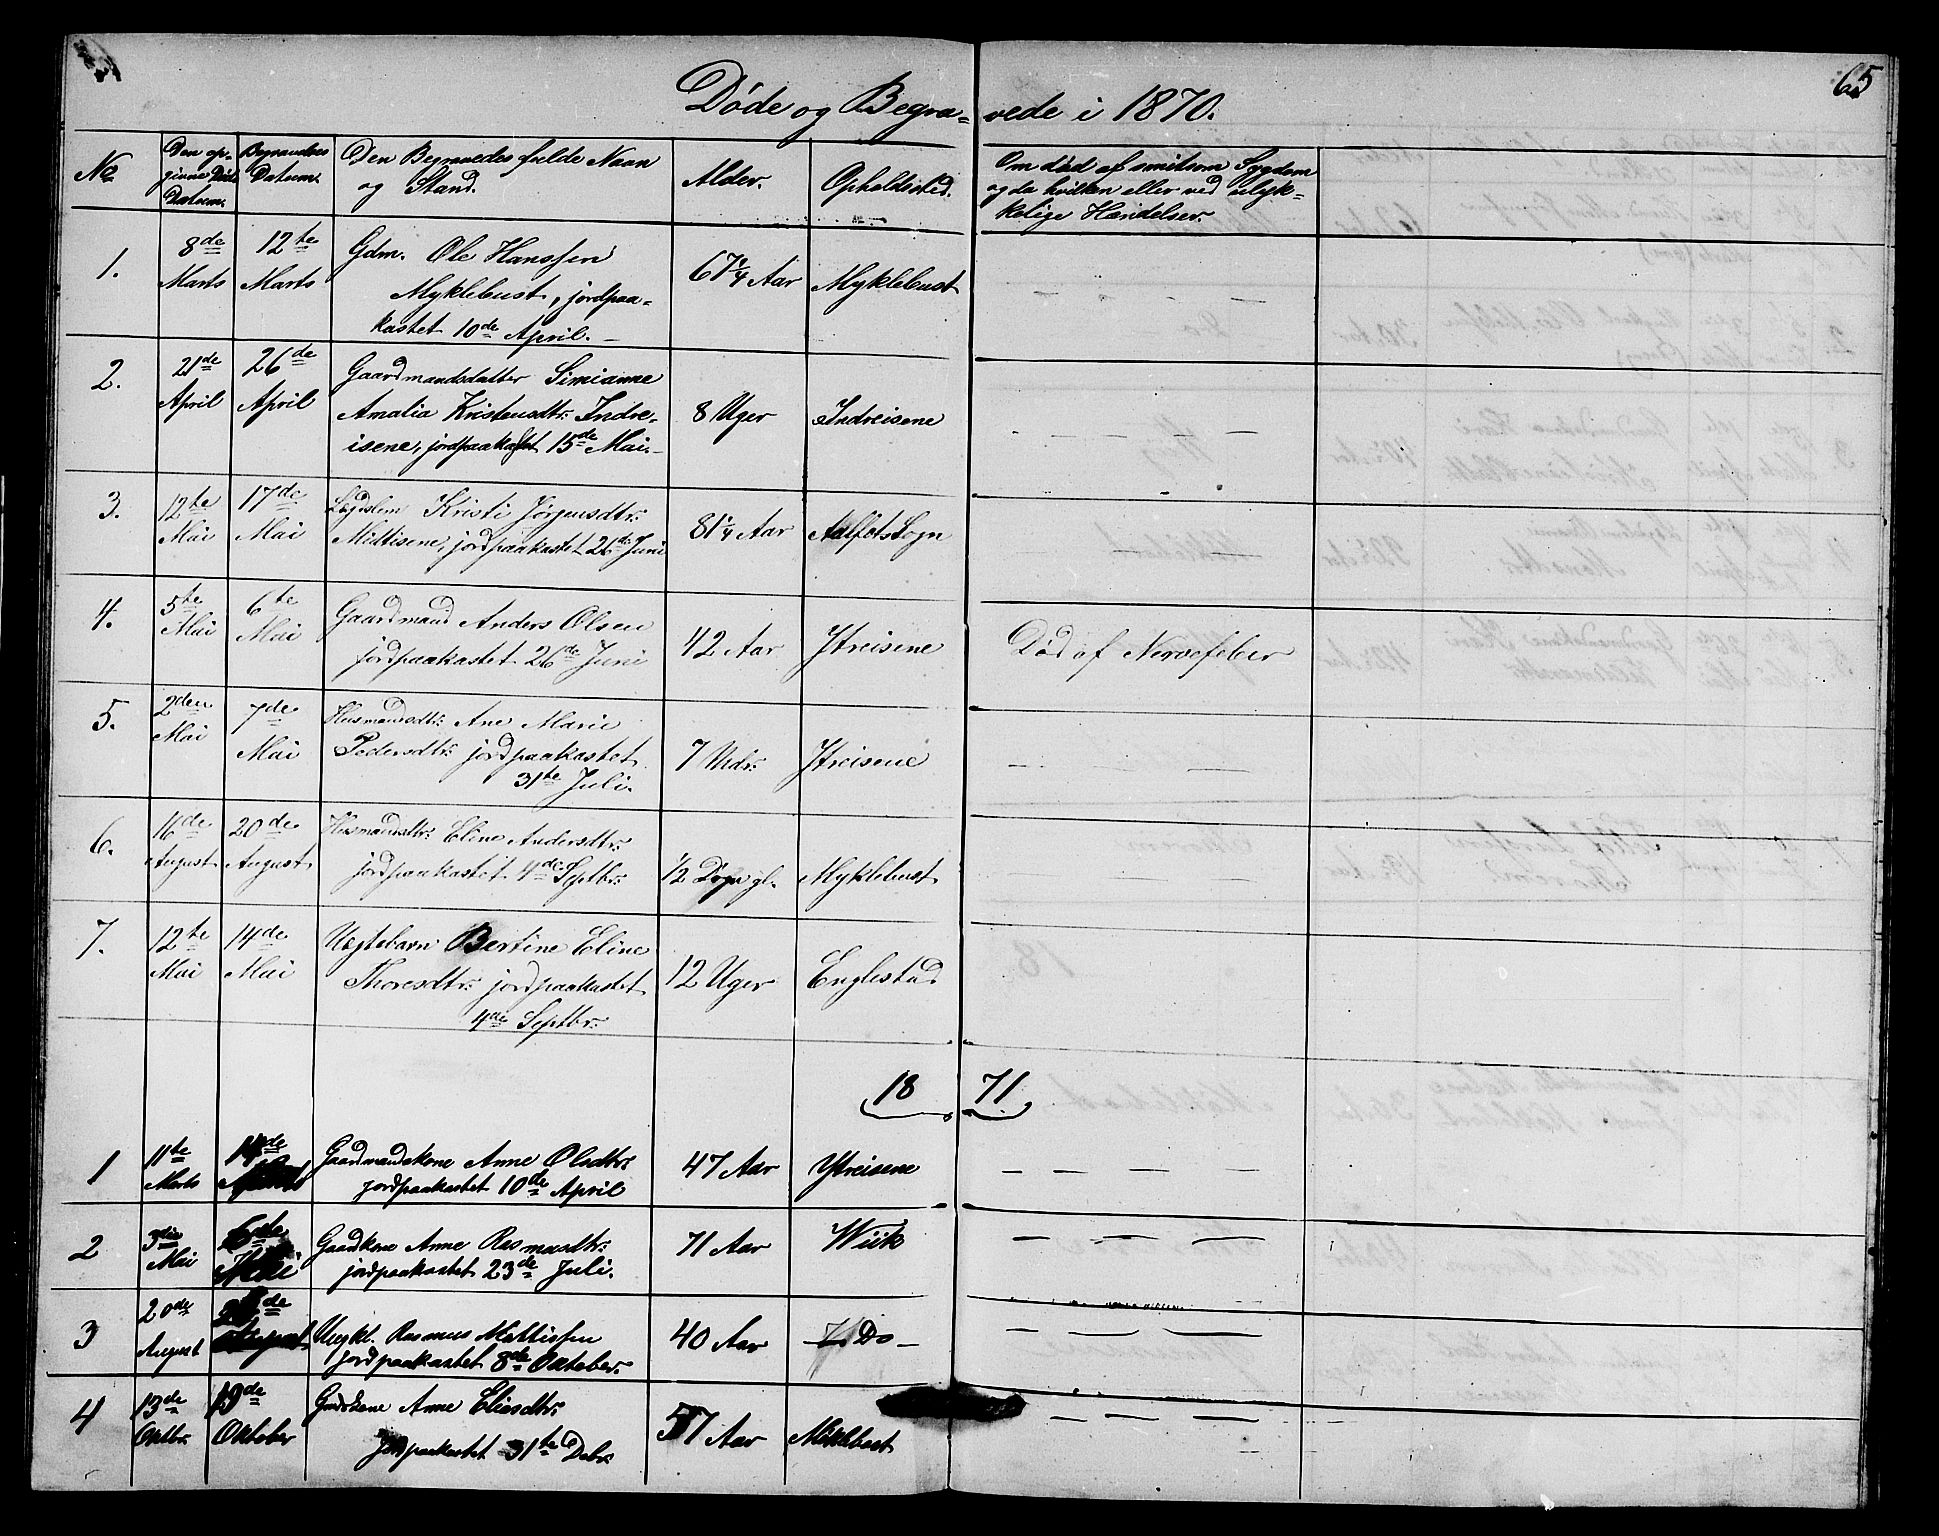 65
Døde og Begra= vede i 1870.
No
Den op-
givne Døds
Datum.
Begravelses
Datum.
Den Begravedes fulde Navn
og Stand.
Alder.
Opholdssted.
Om død af smitsom Sygdom
og da hvilken eller ved ulyk-
kelige Hændelser.
1.
8de
Marts
12te
Marts
Gdm. Ole Hanssen
Myklebust, jordpaa-
kastet 10de April. -
67 1/4 Aar
Myklebust
— — — —
2.
21de
April
26de
April
Gaardmandsdatter Simianne
Amalia Kristensdtr. Indre-
isene, jordpaakastet 15de Mai. -
8 Uger
Indreisene
— — — —
3.
12te
Mai
17de
Mai
Lægdslem Kristi Jørgensdtr.
Midtisene, jordpaakastet 26de Juni
81 1/4 Aar
Aalfots Sogn
— —
4.
5te
Mai
6te
Mai
Gaardmand Anders Olsen
jordpaakastet 26de Juni
42 Aar
Ytreisene
Død af Nervefeber
5.
2den
Mai
7de
Mai
Husmandsdtr. Ane Marie
Pedersdtr. jordpaakastet
31te Juli.
7 Mdr.
Ytreisene
— — — —
6.
16de
August
20de
August
Husmandsdtr. Eline Andersdtr.
jordpaakastet 4de Septbr.
1/2 Døgn gl.
Myklebust
7.
12te
Mai
14de
Mai
Uægtebarn Bertine Eline
Thoresdtr. jordpaakastet
4de Septbr.
12 Uger
Englestad
18 71
1
11te
Marts
14de
Gaardmandskone Anne Olsdtr.
jordpaakastet 10de April
47 Aar
Ytreisene
— — — —
2
3die
Mai
6te
Mai
Gaardkone Anne Rasmusdtr.
jordpaakastet 23de Juli.
71 Aar
Wiik
— — —
3
20de
August
August
Ungkl. Rasmus Mattissen
jordpaakastet 8de Oktober.
40 Aar
Do -
— — —
4
13de
Oktbr.
19de
Oktober
Anne Eliasdtr.
jordpaakastet 31te Debr.
57 Aar
Miklebost
— — —